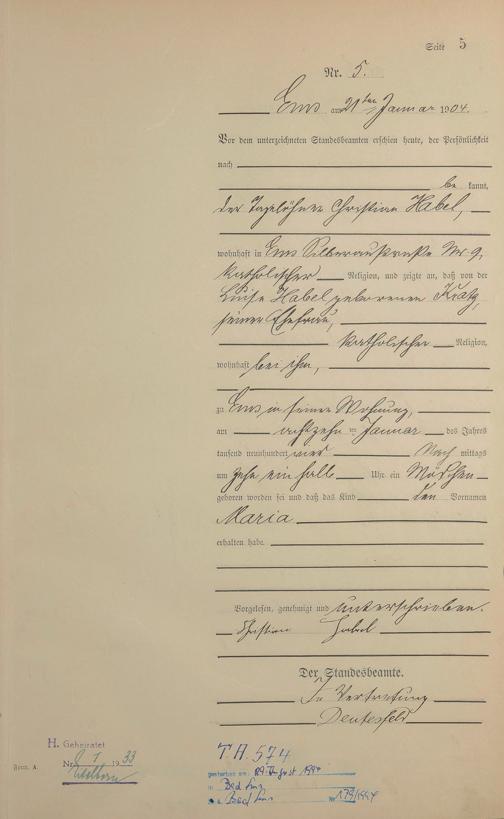 Seite 5
Nr. 5.
Ems am 21ten Januar 1904.
Vor dem unterzeichneten Standesbeamten erschien heute, der Persönlichkeit
nach
be kannt,
der Tagelöhner Christian Habel,
wohnhaft in Ems Silberaustraße Nr 9,
katholischer Religion, und zeigte an, daß von der
Luise Habel geborenen Kratz,
seiner Ehefrau,
katholischer Religion,
wohnhaft bei ihm,
zu Ems in seiner Wohnung,
am achtzehn ten Januar des Jahres
tausend neunhundert vier Nach mittags
um zehn ein halb Uhr ein Mädchen
geboren worden sei und daß das Kind den Vornamen
Maria
erhalten habe.
Vorgelesen, genehmigt und unterschrieben.
Christian Habel
Der Standesbeamte.
In Vertretung
H. Geheiratet
Nr. 1933
Form. A.
T A. 574
gestorben am: August 1994
Bad Ems
Bad Ems Nr 179/1994